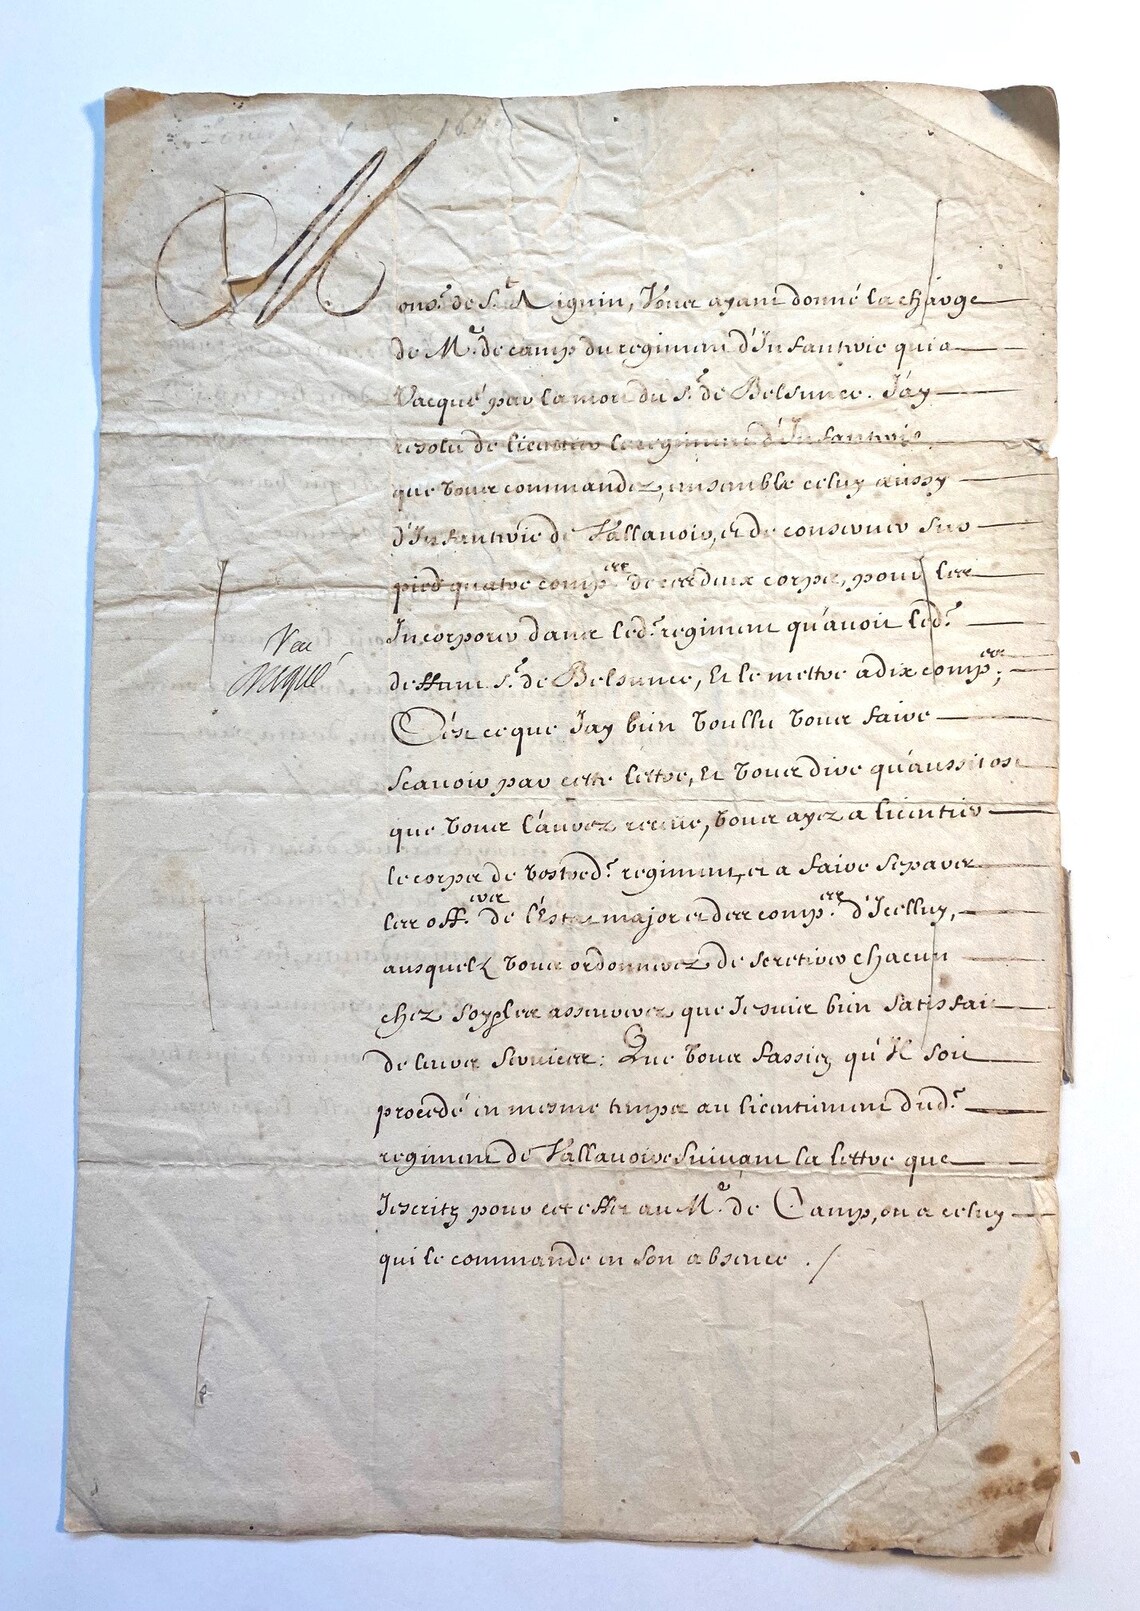 Mons.r de S.t Mignin, Vous ayant donné la charge
de M.e de camp du regiment d'Infanterie qui a
Vacqué par la mort du S.r de Belsunce. J'ay
resolu de licentier le regiment d'Infanterie
que vous commandez, ensemble celuy aussy
d'Infanterie de Vallavoir, et de conserver sur
pied quatre comp.es de ces deux corps, pour les
Incorporer dans led.t regiment qu'avoit led.t
deffunt S.r de Belsunce, Et le mettre a dix comp.es;
C'est ce que J'ay bien voullu vous faire
Scavoir par cette lettre, Et vous dire qu'aussitost
que vous l'aurez receüe, vous ayez a licentier
le corps de vostred.t regiment, et a faire separer
les off.ers de l'Estat major et des comp.es d'Icelluy,
ausquelz vous ordonnerez de se retirer chacun
chez soy, les asseurerez que Je suis bien satisfait
de leurs services: Que vous fassiez qu'Il soit
procedé en mesme temps au licentiment dud.t
regiment de Vallavoir suivant la lettre que
J'escritz pour cet effet au M.e de Camp, ou a celuy
qui le commande en son absence ./
Veu